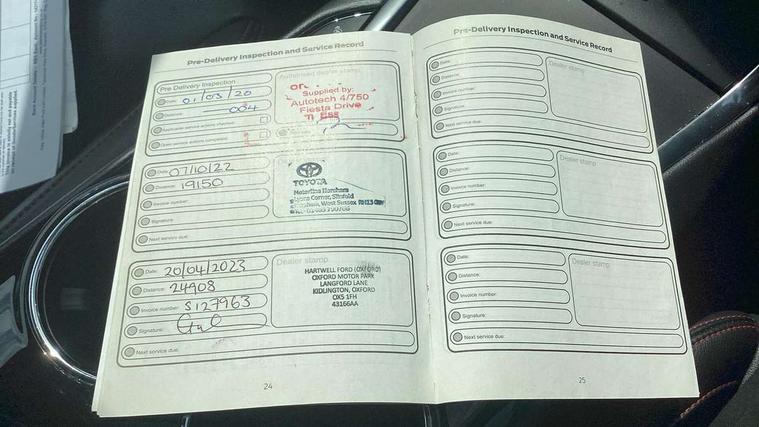 Pre-Delivery Inspection and Service Record
Pre Delivery Inspection
Date: 01/03/20
004
Authorised dealer stamp
Supplied by:
Autotech 4/750
Fiesta Drive
Date: 07/10/22
Distance: 19150
Invoice number:
Signature:
Next service due:
TOYOTA
Motorline Horsham
Corner, Slinfold
West Sussex RH13
Date: 20/04/2023
Distance: 24908
Invoice number: S127963
Signature:
Next service due:
Dealer stamp
HARTWELL FORD (OXFORD)
OXFORD MOTOR PARK
LANGFORD LANE
KIDLINGTON, OXFORD
OX5 1FH
43166AA
24
Pre-Delivery Inspection and Service Record
Date:
Distance:
Invoice number:
Signature:
Next service due:
Dealer stamp
Date:
Distance:
Invoice number:
Signature:
Next service due:
Dealer stamp
Date:
Distance:
Invoice number:
Signature:
Next service due:
Dealer stamp
25